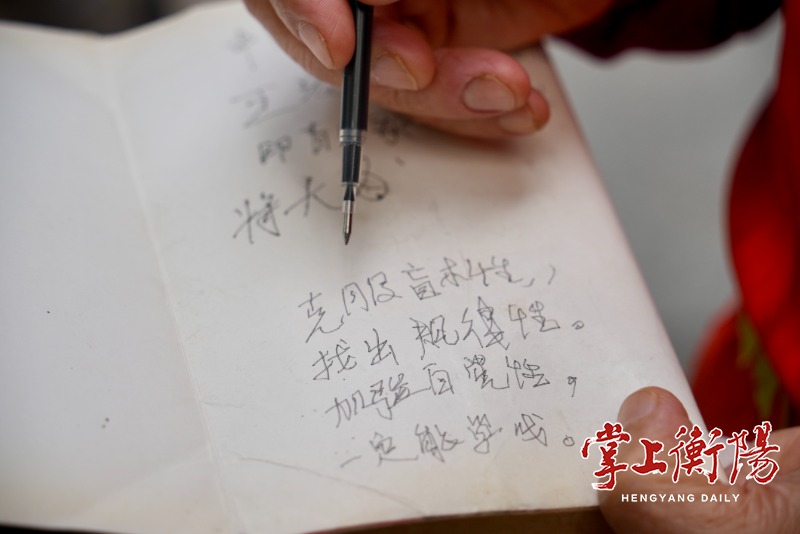 将大
克服盲木性,
找出规律性。
加强自觉性,
一定能学成。
掌上衡陽
HENGYANG DAILY